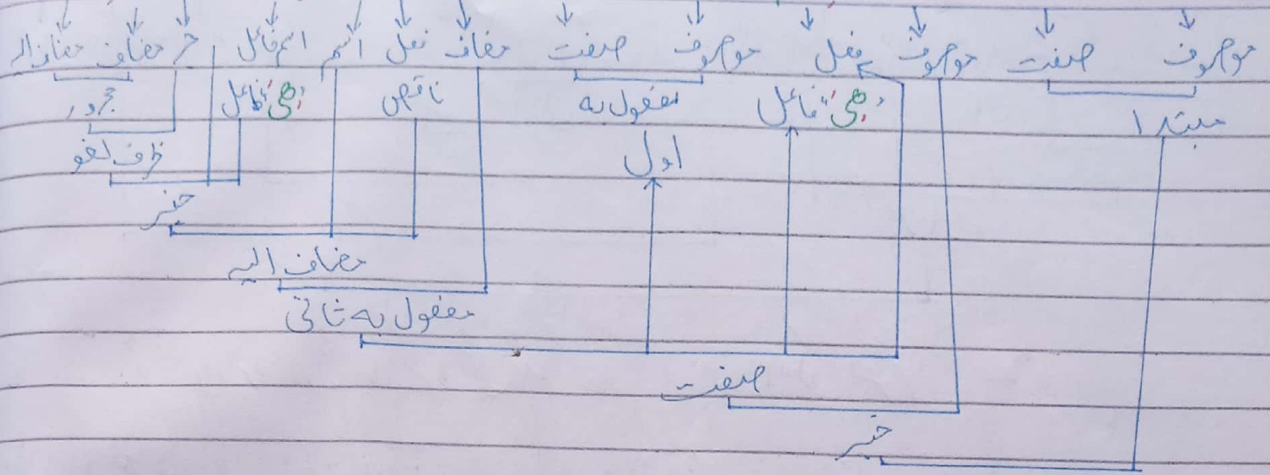 موصوف صفت موصوف فعل موصوف صفت مضاف فعل اسم اسم فاعل جر مضاف مضاف الہ
مبتدا "ھی" فاعل مفعول بہ ناقص "ھی" فاعل مجرور
اول ظرف لغو
خبر
مضاف الیہ
مفعول بہ ثانی
صفت
خبر